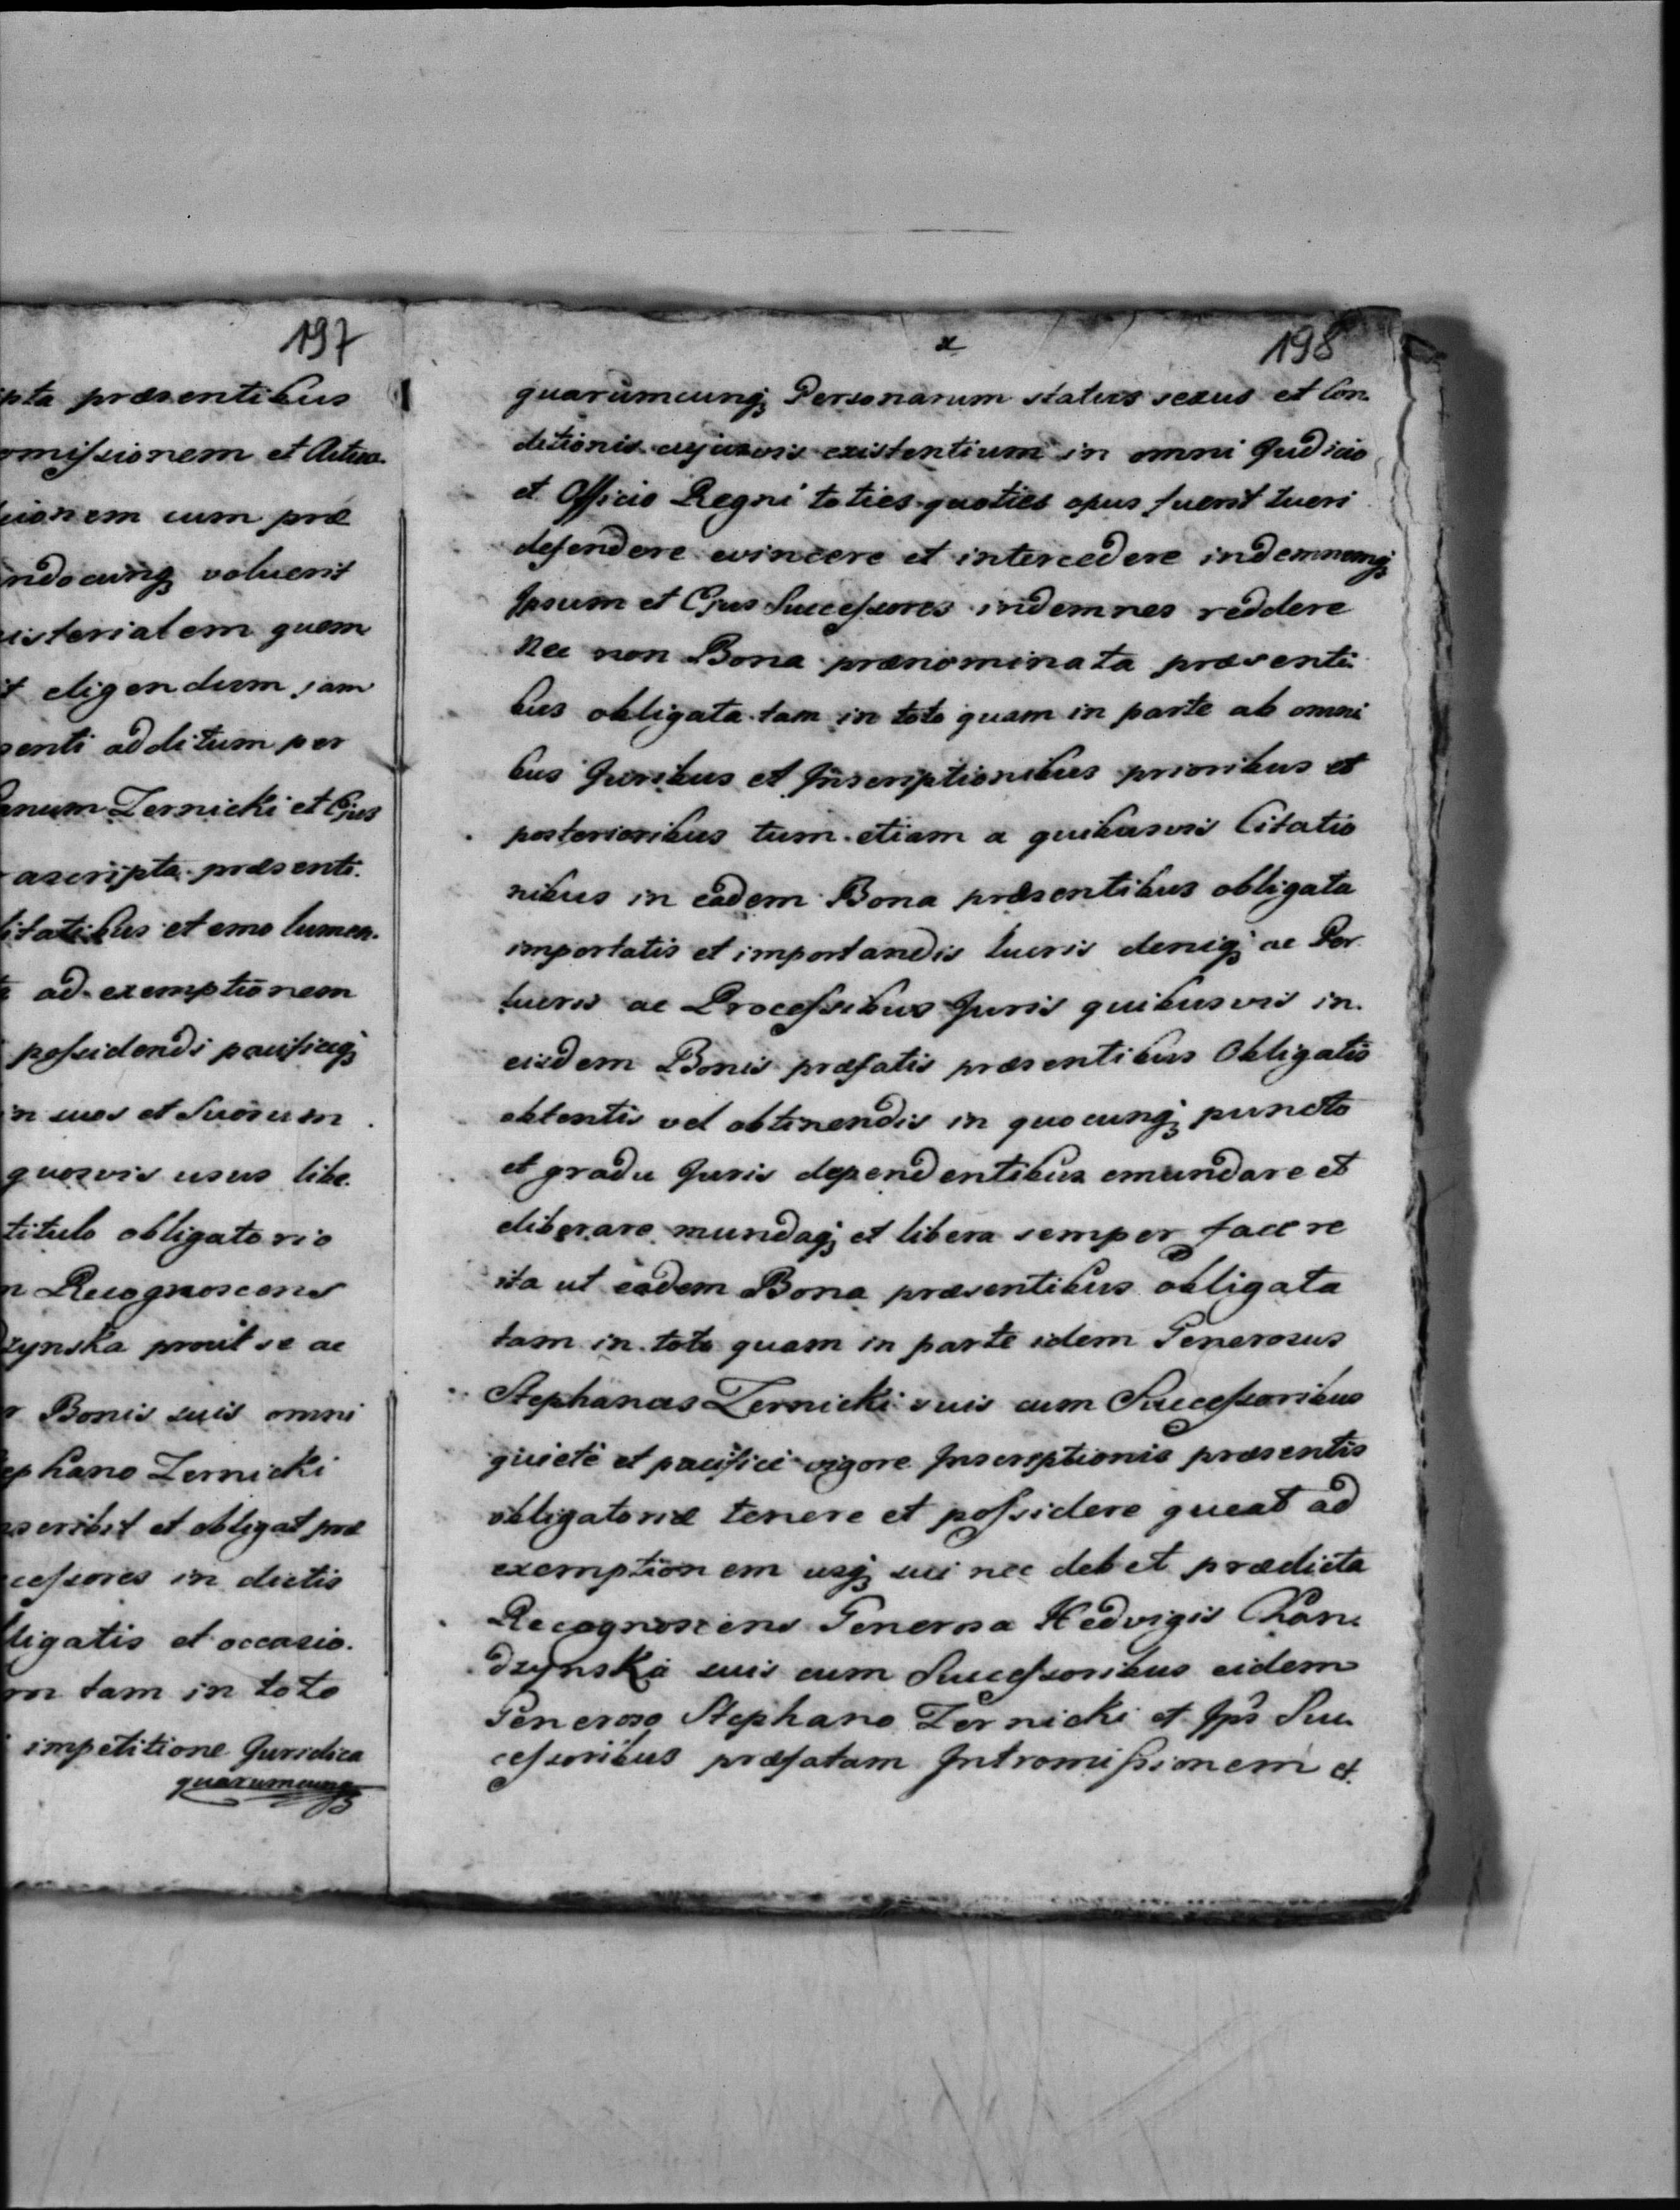 197
pta præsentibus
omissionem et Actua-
sionem cum præ
ndocunq; voluerit
isterialem quem
t eligendum, jam
senti additum per
anum Zernicki et Ejus
ascripta præsenti-
litatibus et emolumen-
ad exemptionem
possidendi pacificeq;
in suos et Suorum
quosvis usus libe-
titulo obligatorio
n Recognoscens
dzynska prout se ac
r Bonis suis omni
ephano Zernicki
nscribit et obligat præ
ccessores in dictis
bligatis et occasio-
m tam in toto
impetitione Juridica
quarumcunq;
x
198
quarumcunq; Personarum status sexus et Con-
ditionis cujusvis existentium in omni Judicio
et Officio Regni toties quoties opus fuerit tueri
defendere evincere et intercedere indemnemq;
Ipsum et Ejus Successores indemnes reddere
Nec non Bona prænominata præsenti-
bus obligata tam in toto quam in parte ab omni
bus Juribus et Inscriptionibus prioribus et
posterioribus tum etiam a quibusvis Citatio
nibus in eadem Bona præsentibus obligata
importatis et importandis lucris deniq; ac Per
lucris ac Processibus Juris quibusvis in
eisdem Bonis præfatis præsentibus Obligatis
obtentis vel obtinendis in quocunq; puncto
et gradu Juris dependentibus emundare et
eliberare mundaq; et libera semper facere
ita ut eadem Bona præsentibus obligata
tam in toto quam in parte idem Generosus
Stephanus Zernicki suis cum Successoribus
quiete et pacifice vigore Inscriptionis præsentis
obligatoriæ tenere et possidere queat ad
exemptionem usq; sui nec debet prædicta
Recognoscens Generosa Hedvigis Chan-
dzynska suis cum Successoribus eidem
Generoso Stephano Zernicki et Ips Suc-
cessoribus præfatam Intromissionem et